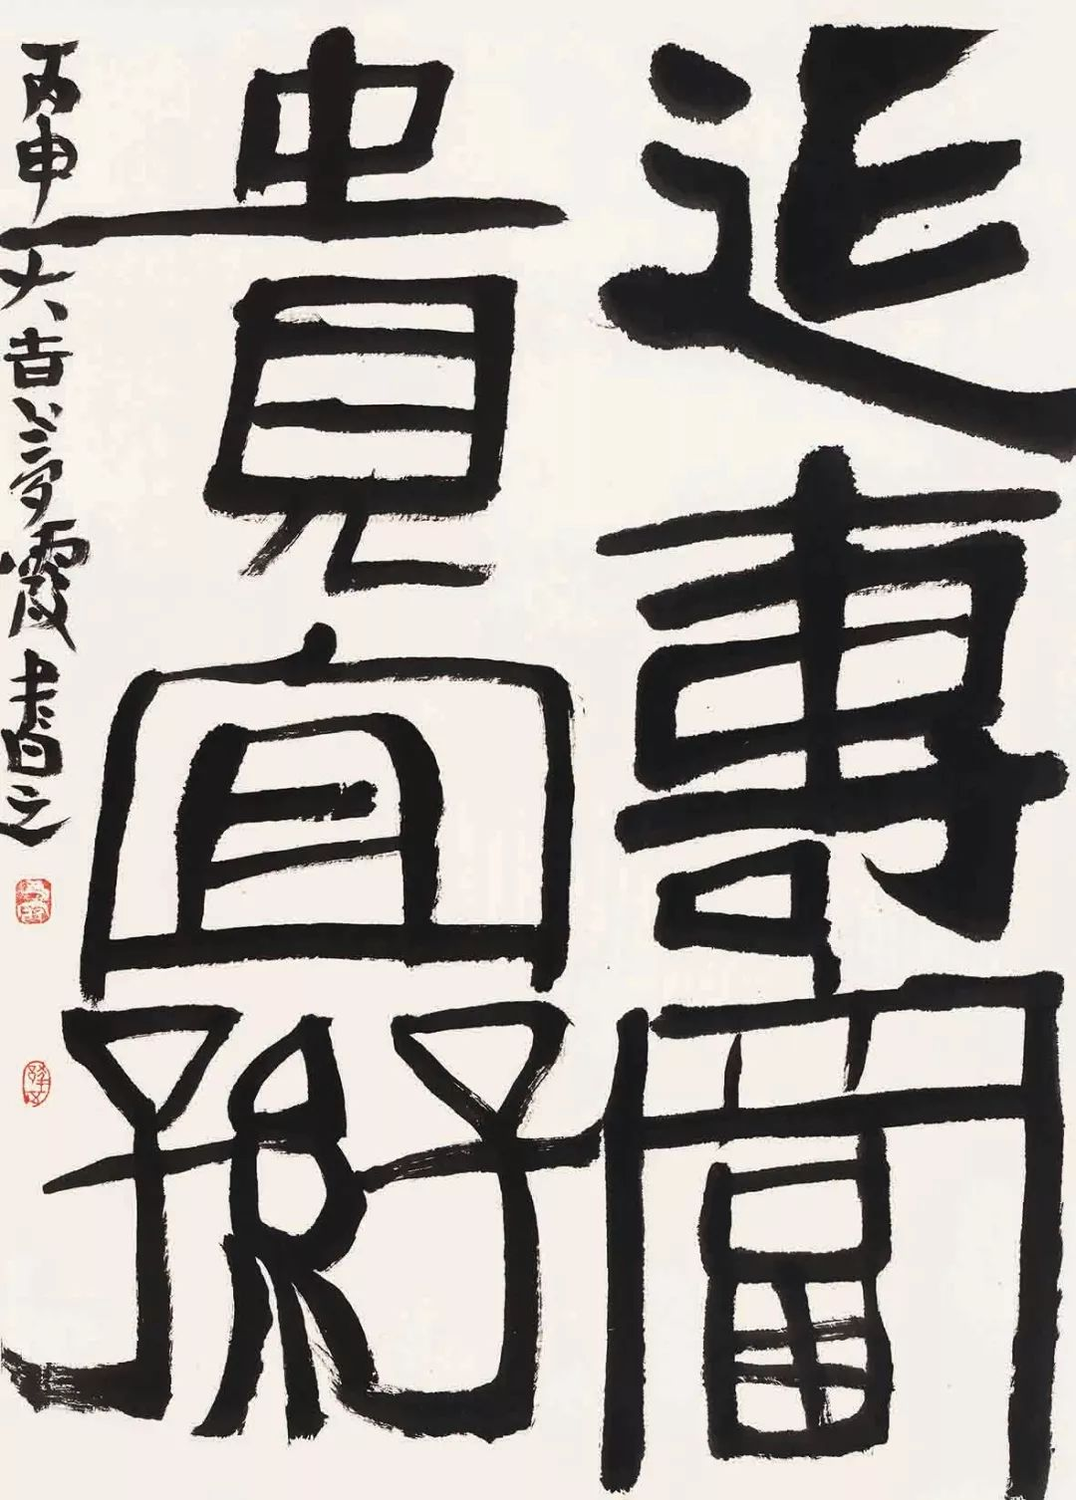 延壽富
貴宜子孫
丙申大吉夢霞書之